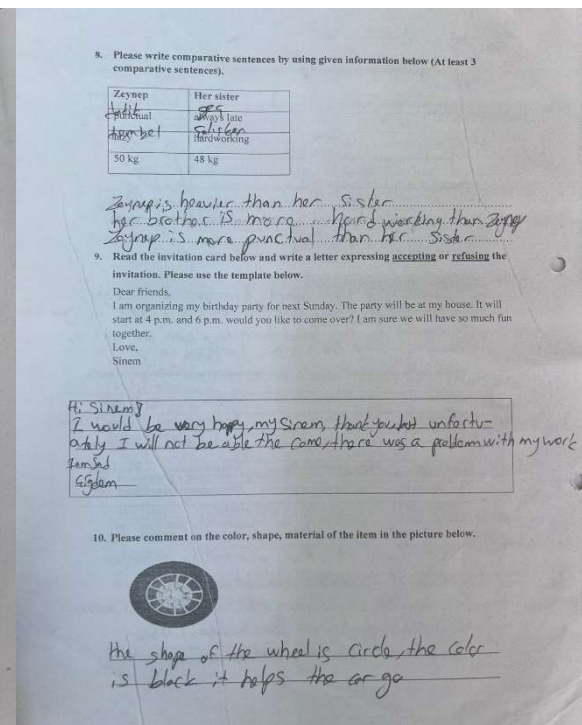 8. Please write comparative sentences by using given information below (At least 3
comparative sentences).
Zeynep Her sister
punctual always late
tembel hardworking
50 kg 48 kg
Zeynep is heavier than her sister
her brother is more hard working than Zeynep
Zeynep is more punctual than her Sister
9. Read the invitation card below and write a letter expressing accepting or refusing the
invitation. Please use the template below.
Dear friends,
I am organizing my birthday party for next Sunday. The party will be at my house. It will
start at 4 p.m. and 6 p.m. would you like to come over? I am sure we will have so much fun
together.
Love,
Sinem
Hi Sinem
I would be very happy, my Sinem, thank you, but unfortu-
ately I will not be able the come, there was a problem with my work
I am Sad
Çiğdem
10. Please comment on the color, shape, material of the item in the picture below.
the shape of the wheel is circle, the color
is black it helps the car go